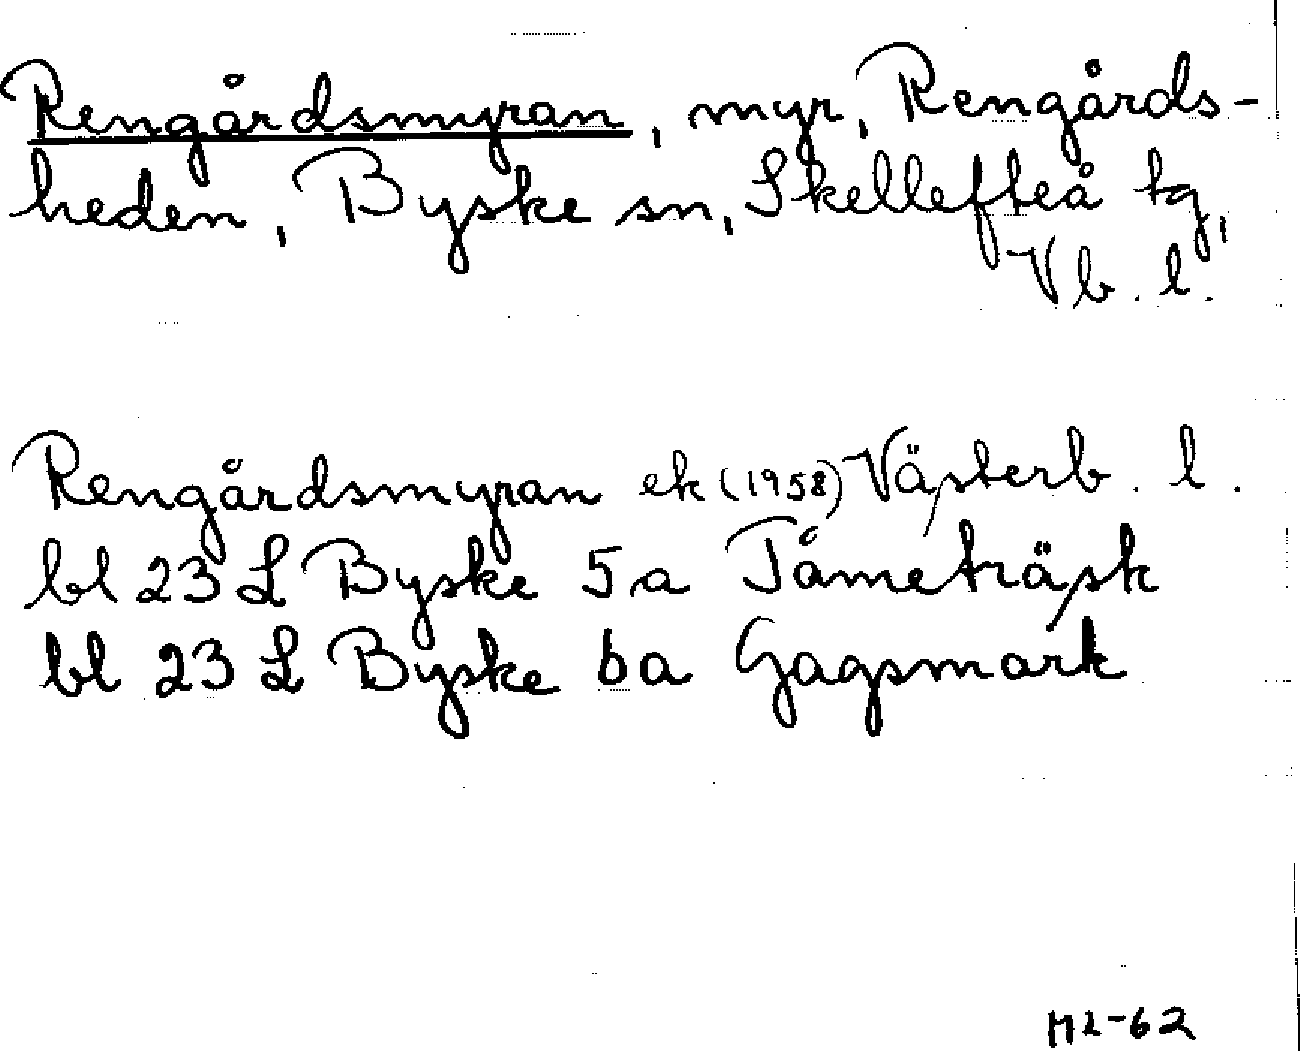 Rengårdsmyran, myr, Rengårds-
heden, Byske sn, Skellefteå tg,
Vb. l.
Rengårdsmyran ek (1958) Västerb. l.
bl 23 L Byske 5a Tåmeträsk
bl 23 L Byske 6a Gagsmark
ML-62